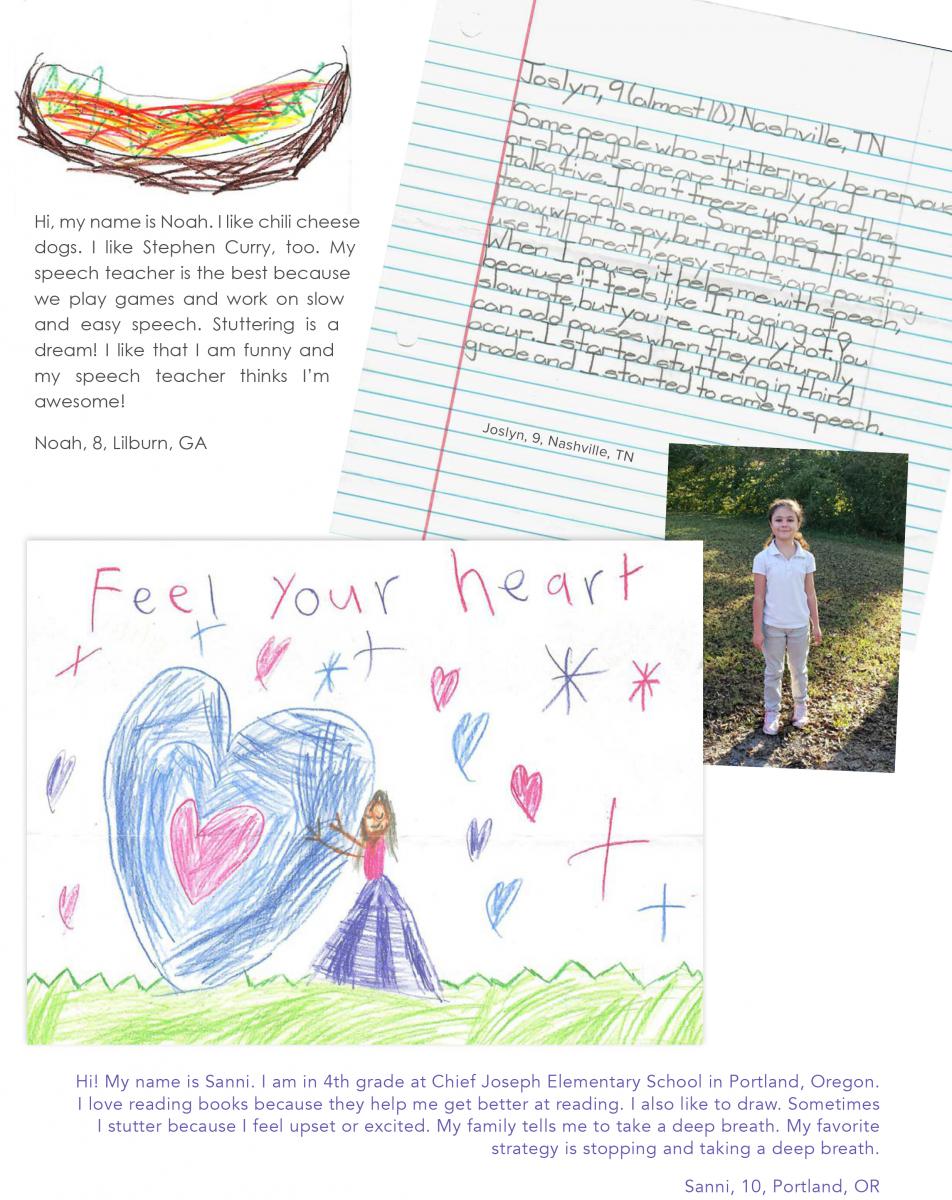 Hi, my name is Noah. I like chili cheese
dogs. I like Stephen Curry, too. My
speech teacher is the best because
we play games and work on slow
and easy speech. Stuttering is a
dream! I like that I am funny and
my speech teacher thinks I'm
awesome!
Noah, 8, Lilburn, GA
Joslyn, 9 (almost 10), Nashville, TN
Some people who stutter may be nervous
or shy, but some are friendly and
talkative. I don't freeze up when the
teacher calls on me. Sometimes I don't
know what to say, but not a lot. I like to
use full breath, easy starts, and pausing.
When I pause, it helps me with speech,
because it feels like I'm going at a
slow rate, but you're actually not. You
can add pauses when they naturally
occur. I started stuttering in third
grade and I started to come to speech.
Joslyn, 9, Nashville, TN
Feel your heart
Hi! My name is Sanni. I am in 4th grade at Chief Joseph Elementary School in Portland, Oregon.
I love reading books because they help me get better at reading. I also like to draw. Sometimes
I stutter because I feel upset or excited. My family tells me to take a deep breath. My favorite
strategy is stopping and taking a deep breath.
Sanni, 10, Portland, OR